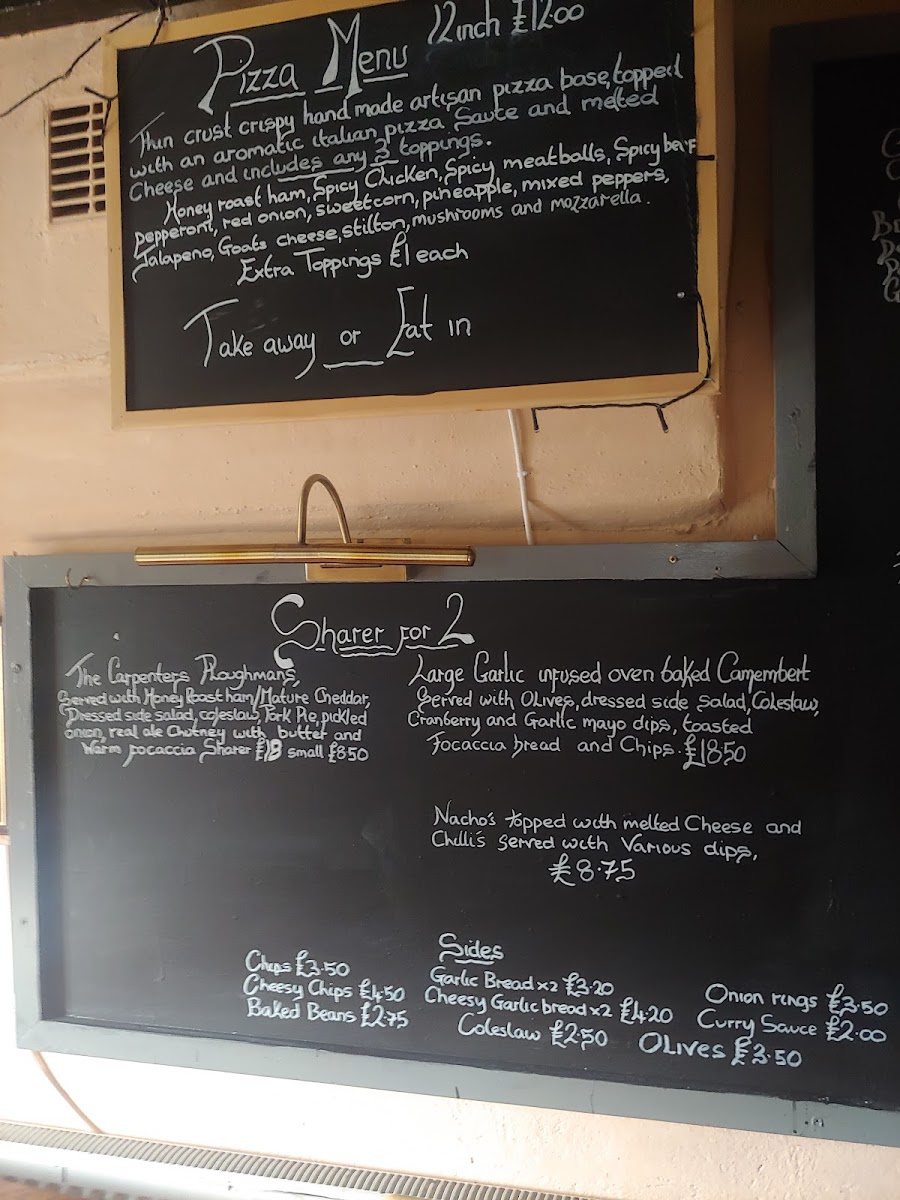 Pizza Menu 12inch £12.00
Thin crust crispy hand made artisan pizza base, topped
with an aromatic italian pizza Sauce and melted
Cheese and includes any 3 toppings.
Honey roast ham, Spicy Chicken, Spicy meatballs, Spicy beef
pepperoni, red onion, sweetcorn, pineapple, mixed peppers,
Jalapeno, Goats cheese, stilton, mushrooms and mozzarella.
Extra Toppings £1 each
Take away or Eat in
Sharer for 2
The Carpenters Ploughmans,
Served with Honey Roast ham/Mature Cheddar,
Dressed side salad, coleslaw, Pork Pie, pickled
onion, real ale Chutney with butter and
Warm focaccia Sharer £18 small £8.50
Large Garlic infused oven baked Camembert
Served with Olives, dressed side salad, Coleslaw,
Cranberry and Garlic mayo dips, toasted
Focaccia bread and Chips. £18.50
Nacho's topped with melted Cheese and
Chilli's served with Various dips,
£8.75
Sides
Chips £3.50
Cheesy Chips £4.50
Baked Beans £2.75
Garlic Bread x2 £3.20
Cheesy Garlic bread x2 £4.20
Coleslaw £2.50
Onion rings £3.50
Curry Sauce £2.00
OLives £3.50